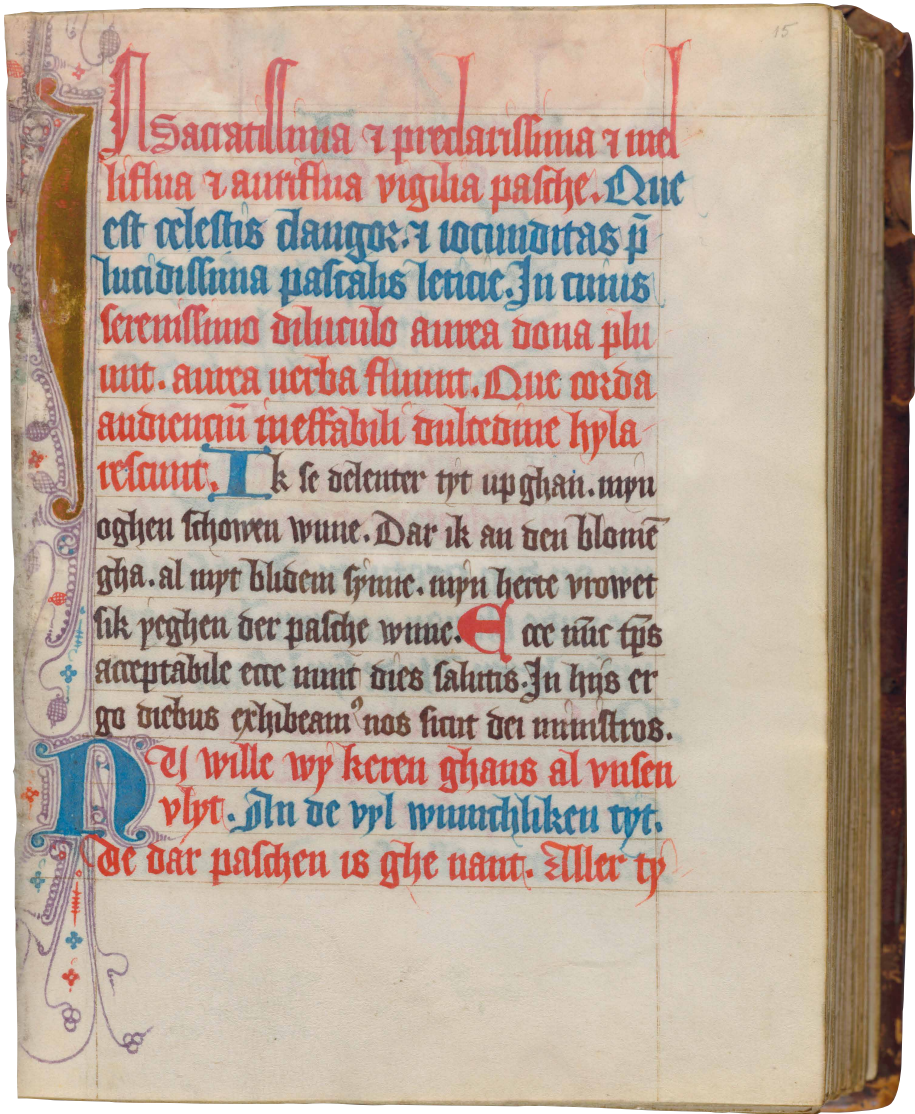 15
IN Sacratissima ⁊ preclarissima ⁊ mel
liflua ⁊ auriflua vigilia pasche. Que
est celestis clangor. ⁊ iocunditas p̄
lucidissima pascalis leticie. In cuius
serenissimo diluculo aurea dona plu
unt. aurea uerba fluunt. Que corda
audienciū ineffabili dulcedine hyla
rescunt. Ik se delenter tyt up ghan. myn
oghen schowen wune. Dar ik an den blomē
gha. al myt blidem synne. myn herte vrowet
sik yeghen der pasche wune. Ecce nūc tp̄s
acceptabile ecce nunc dies salutis. In hijs er
go diebus exhibeamꝰ nos sicut dei ministros.
NU wille wy keren ghans al vnsen
vlyt. An de vyl wunichliken tyt.
De dar paschen is ghe nant. Aller ty